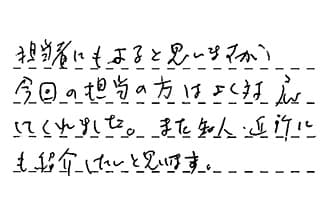 担当者にもよると思いますが
今回の担当の方はよく対応
してくれました。また知人・近所に
も紹介したいと思います。